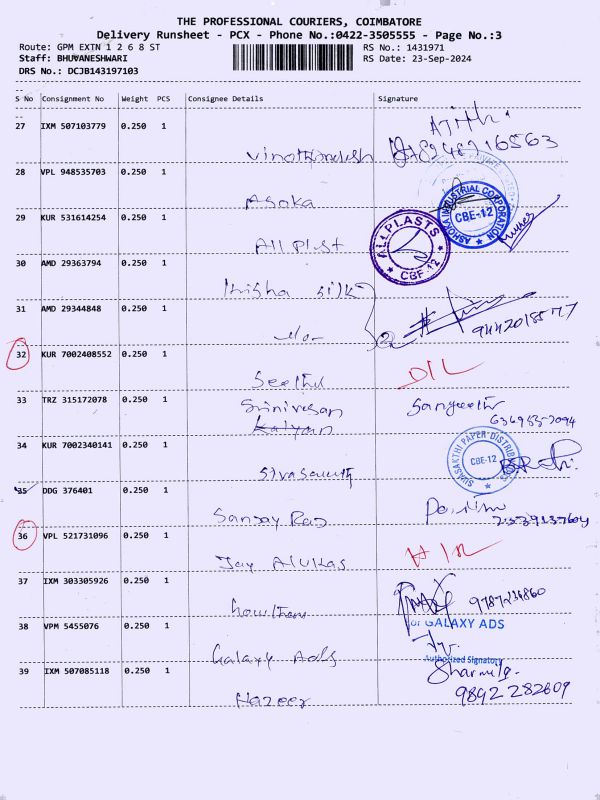 THE PROFESSIONAL COURIERS, COIMBATORE
Delivery Runsheet - PCX - Phone No.:0422-3505555 - Page No.:3
Route: GPM EXTN 1 2 6 8 ST RS No.: 1431971
Staff: BHUVANESHWARI RS Date: 23-Sep-2024
DRS No.: DCJB143197103
S No Consignment No Weight PCS Consignee Details Signature
27 IXM 507103779 0.250 1
28 VPL 948535703 0.250 1
Asoka
ASHOKA INDUSTRIAL CORPORATION
CBE-12
29 KUR 531614254 0.250 1
All Plast
ALLPLASTS
CBE-12
30 AMD 29363794 0.250 1
Silk
31 AMD 29344848 0.250 1
32 KUR 7002408552 0.250 1
D/L
33 TRZ 315172078 0.250 1
Srinivasan
Sangeeth
Kalyan
34 KUR 7002340141 0.250 1
SIVASAKTHI PAPER DISTRIBUTORS
CBE-12
35 DDG 376401 0.250 1
Sanjay Raj
36 VPL 521731096 0.250 1
Joy Alukas
37 IXM 303305926 0.250 1
Gowtham
for GALAXY ADS
38 VPM 5455076 0.250 1
Galaxy Ads
Authorized Signatory
39 IXM 507085118 0.250 1
Sharmila
9842 282609
Nazeer